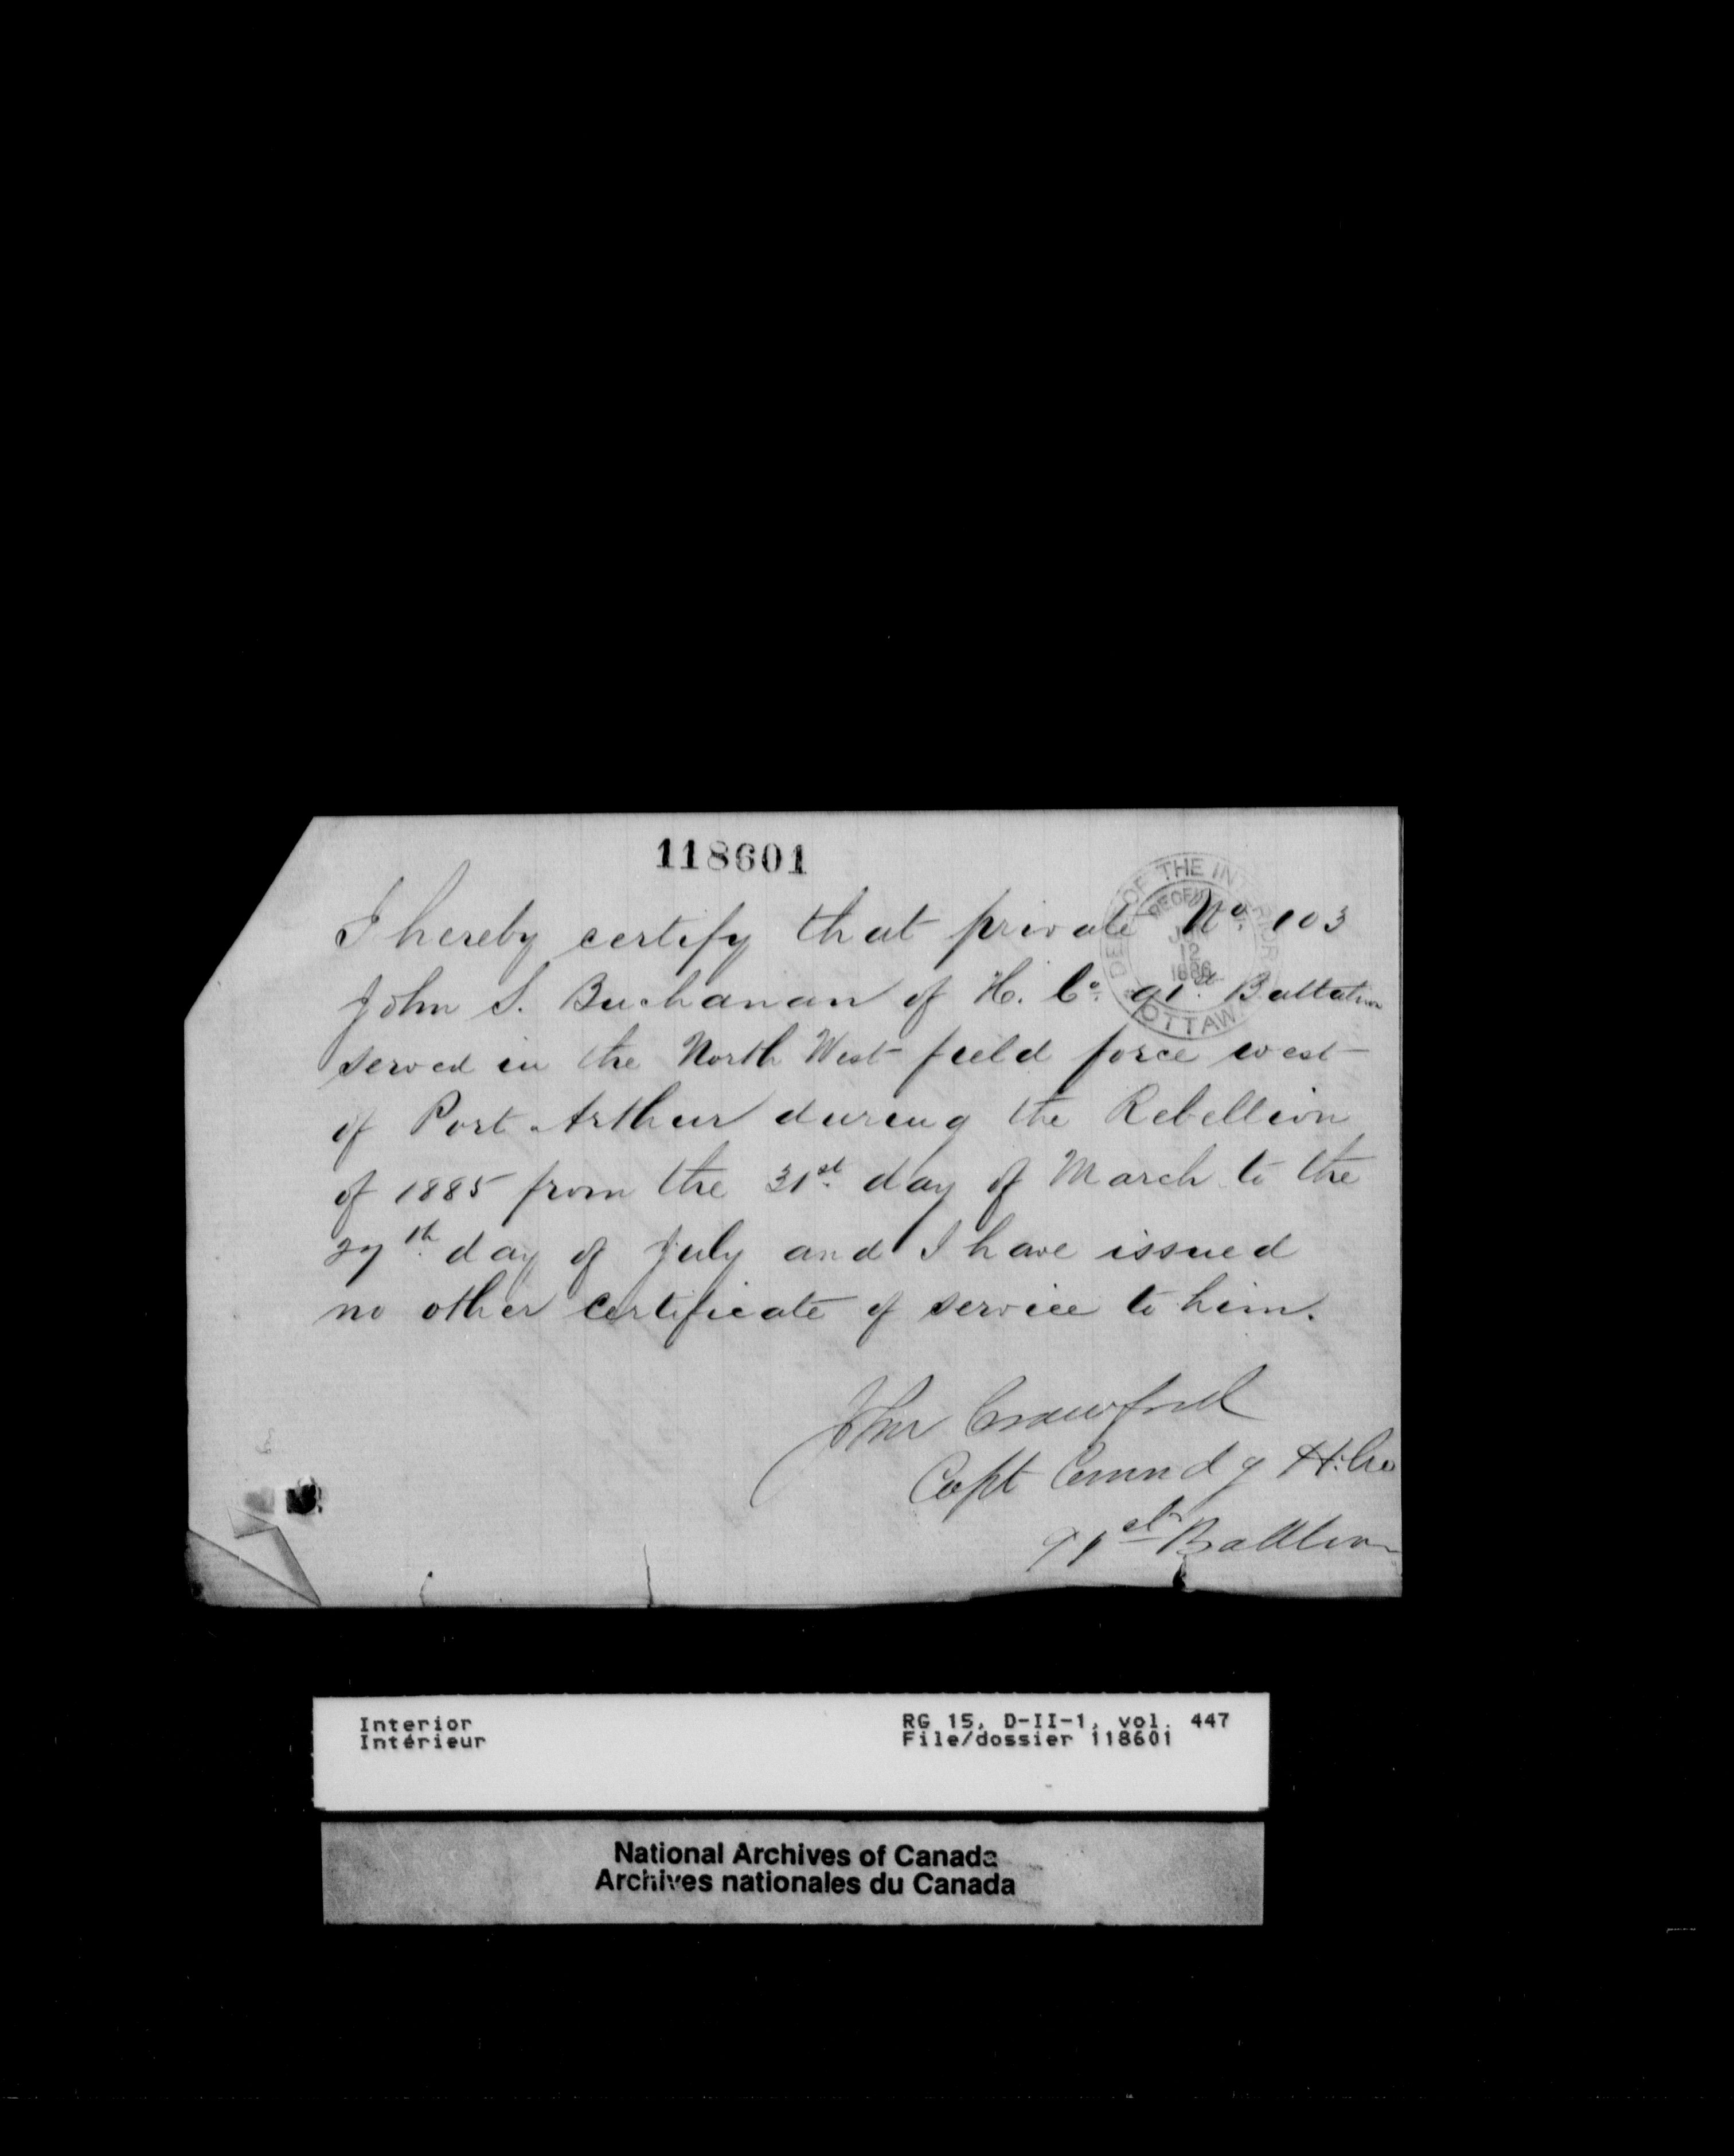 118601
DEPT OF THE INTERIOR
RECEIVED
12
1886
OTTAWA
I hereby certify that private No. 103
John S. Buchanan of H. Co. 91st Battalion
served in the North West field force west
of Port Arthur during the Rebellion
of 1885 from the 31st day of March to the
27th day of July and I have issued
no other certificate of service to him.
John Crawford
Capt Commdg H. Co
91st Battlion
Interior
Intérieur
RG 15, D-II-1, vol. 447
File/dossier 118601
National Archives of Canada
Archives nationales du Canada